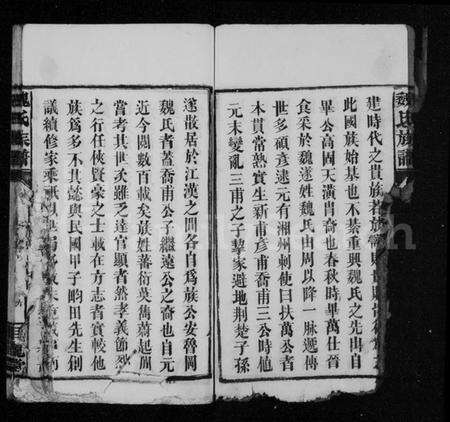 魏氏族譜
建時代之貴族若族
此國族始基也不綦重與魏氏之先出自
畢公高固天潢胄裔也春秋時畢萬仕晉
食采於魏遂姓魏氏由周以降一脉遞傳
世多碩彥逮元有湘州刺使曰扶萬公者
本貫常熟實生新甫彥甫喬甫三公時他
元末變亂三甫之子挈家避地荆楚子孫
遂散居於江漢之間各自爲族公安魯岡
魏氏者蓋喬甫公子繼遠公之裔也自元
迄今閱數百載矣族姓蕃衍英儁蔚起周
嘗考其世次雖乏達官顯者然孝義節烈
之行任俠賢豪之士載在方志者實較他
族爲多不其懿與民國甲子昀田先生創
議續修家乘
魏氏族譜